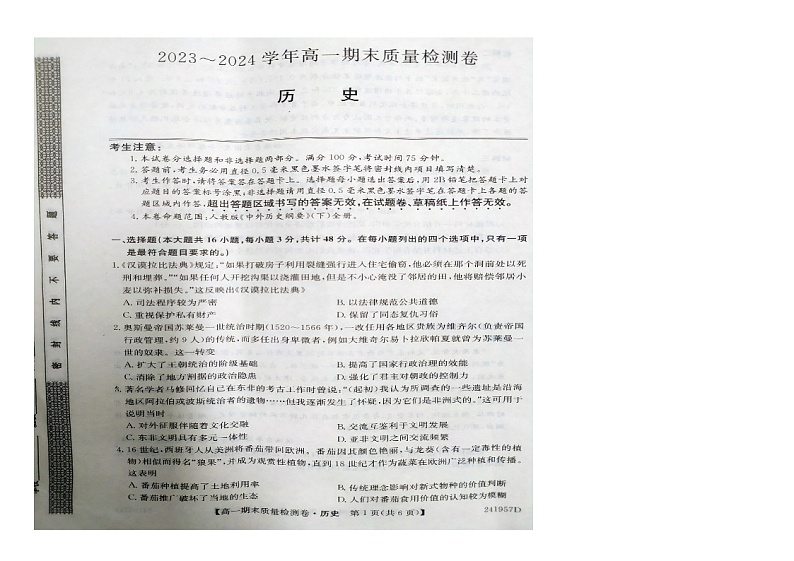 2023～2024学年高一期末质量检测卷
历 史
考生注意：
1. 本试卷分选择题和非选择题两部分。满分100分，考试时间75分钟。
2. 答题前，考生务必用直径0.5毫米黑色墨水签字笔将密封线内项目填写清楚。
3. 考生作答时，请将答案答在答题卡上。选择题每小题选出答案后，用2B铅笔把答题卡上对
应题目的答案标号涂黑；非选择题请用直径0.5毫米黑色墨水签字笔在答题卡上各题的答
题区域内作答，超出答题区域书写的答案无效，在试题卷、草稿纸上作答无效。
4. 本卷命题范围：人教版《中外历史纲要》（下）全册。
一、选择题（本大题共16小题，每小题3分，共计48分。在每小题列出的四个选项中，只有一项
是最符合题目要求的。）
1.《汉谟拉比法典》规定：“如果打破房子利用裂缝强行进入住宅偷窃，他必须在那个洞前处以死
刑和埋葬。”“如果任何人开挖沟渠以浇灌田地，但是不小心淹没了邻居的田，他将赔偿邻居小
麦以弥补损失。”这反映出《汉谟拉比法典》
A. 司法程序较为严密 B. 以法律规范公共道德
C. 重视保护私有财产 D. 保留了同态复仇习俗
2. 奥斯曼帝国苏莱曼一世统治时期（1520～1566年），一改任用各地区贵族为维齐尔（负责帝国
行政管理，约9人）的传统，而多任出身卑微者，例如大维奇尔易卜拉欣帕夏就曾为苏莱曼一
世的奴隶。这一转变
A. 扩大了王朝统治的阶级基础 B. 提高了国家行政治理的效能
C. 消除了地方割据的政治隐患 D. 强化了君主对朝政的控制力
3. 著名学者马修回忆自己在东非的考古工作时曾说：“（起初）我认为所调查的一些遗址是沿海
地区阿拉伯或波斯统治者的遗物……但我逐渐发生了怀疑，因为它们是非洲式的。”这可用于
说明当时
A. 对外征服伴随着文化交融 B. 交流互鉴利于文明发展
C. 东非文明具有多元一体性 D. 亚非文明之间交流频繁
4. 16世纪，西班牙人从美洲将番茄带回欧洲。番茄因其颜色艳丽，与龙葵（含有一定毒性的植
物）相似而得名“狼果”，并成为观赏性植物，直到18世纪才作为蔬菜在欧洲广泛种植和传播。
这表明
A. 番茄种植提高了土地利用率 B. 传统理念影响对新式物种的价值判断
C. 番茄推广破坏了当地的生态 D. 人们对番茄食用价值的认知较为模糊
【高一期末质量检测卷·历史 第1页（共6页）】 241957D
密 封 线 内 不 要 答 题